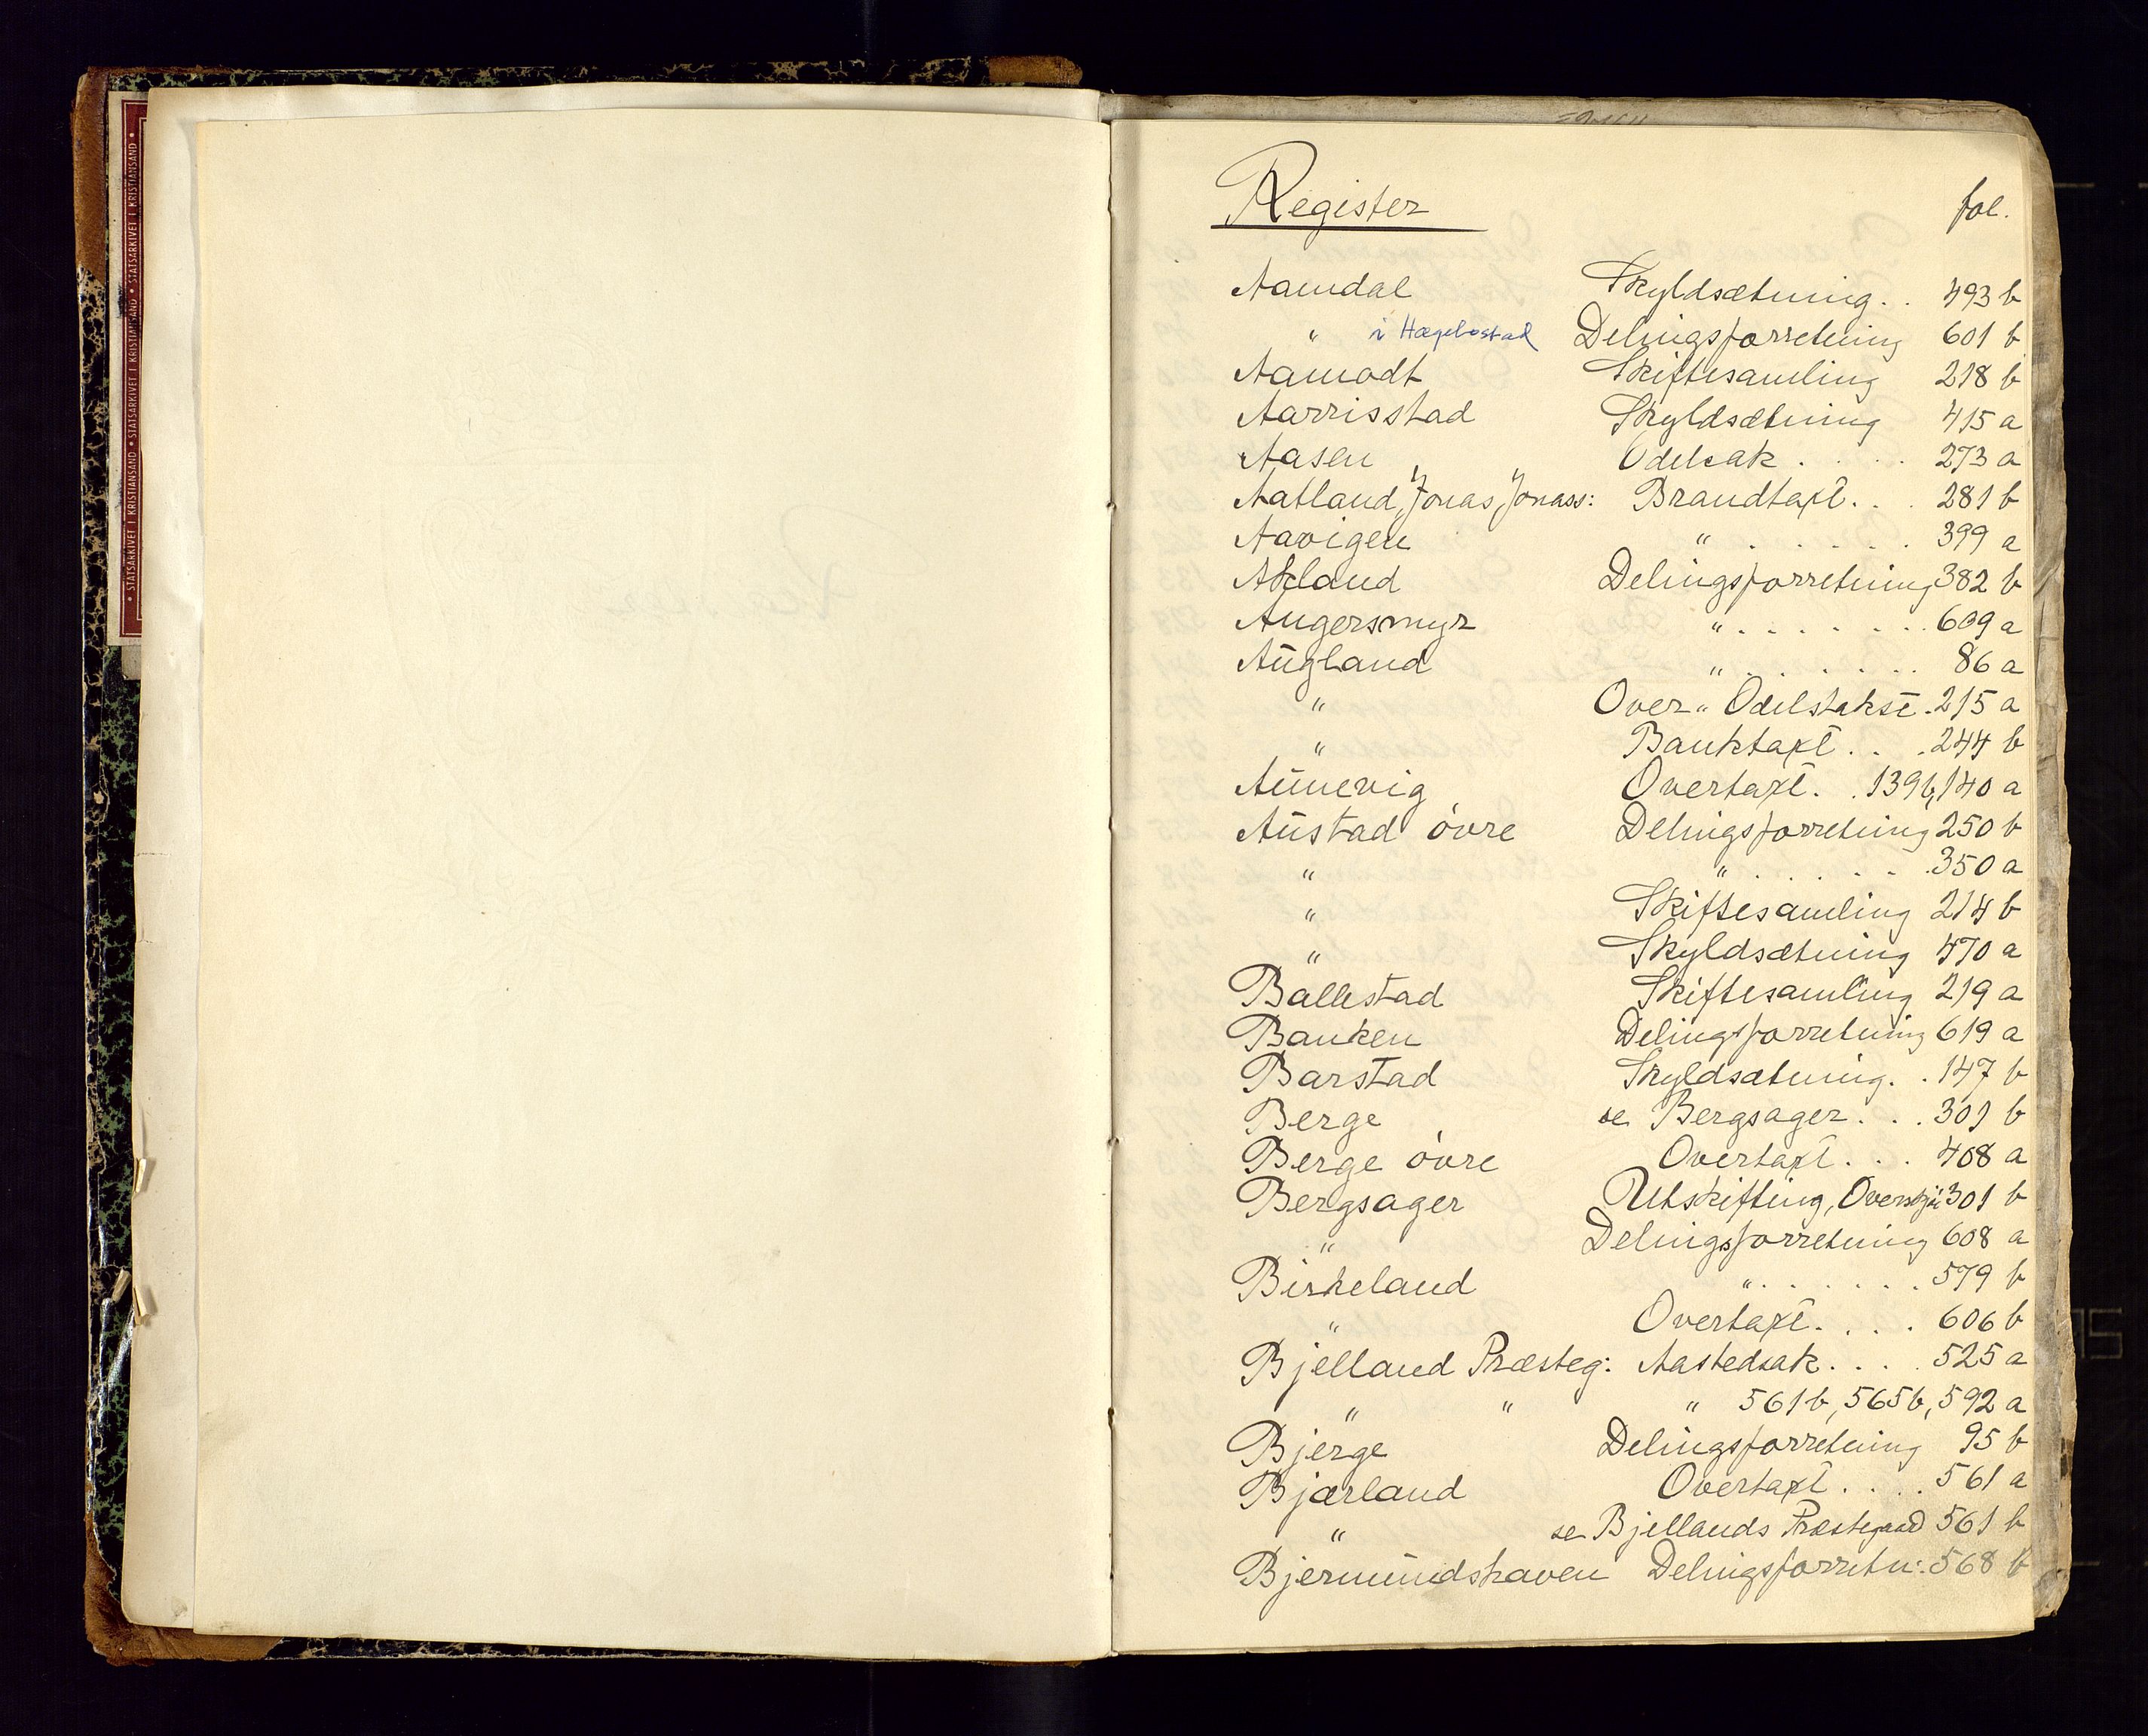 • STATSARKIVET I KRISTIANSAND • STATSARKIVET I KRISTIANSAND • STATSARKIVET I KRISTIANSAND •
Register fol.
Aamdal Skyldsætning . . 493 b
" i Hægebostad Delingsforretning 601 b
Aamodt Skiftesamling 218 b
Aarrisstad Skyldsætning 415 a
Aasen Odelsak . . . . 273 a
Aatland, Jonas Jonass: Brandtaxt . . . 281 b
Aavigen " . . . . . . 399 a
Akland Delingsforretning 382 b
Angersmyr " . . . . . . . 609 a
Aŭgland " . . . . . . 86 a
" Over " Odelstakst . 215 a
" Banktaxt . . . 244 b
Aŭnevig Overtaxt . . 139 b, 140 a
Aŭstad óvre Delingsforretning 250 b
" " . . . . . . 350 a
" Skiftesamling 214 b
" Skyldsætning 470 a
Ballestad Skiftesamling 219 a
Banken Delingsforretning 619 a
Barstad Skyldsætning . . 147 b
Berge se Bergsager . . . 301 b
Berge óvre Overtaxt . . . 408 a
Bergsager Utskifting, Overskjø 301 b
" Delingsforretning 608 a
Birkeland " . . . . . . . 579 b
" Overtaxt . . . . 606 b
Bjelland Præsteg: Aastedsak . . . . 525 a
" " " 561 b, 565 b, 592 a
Bjerge Delingsforretning 95 b
Bjærland Overtaxt . . . . 561 a
" se Bjellands Præstegaard 561 b
Bjermŭndshaven Delingsforretn: 568 b